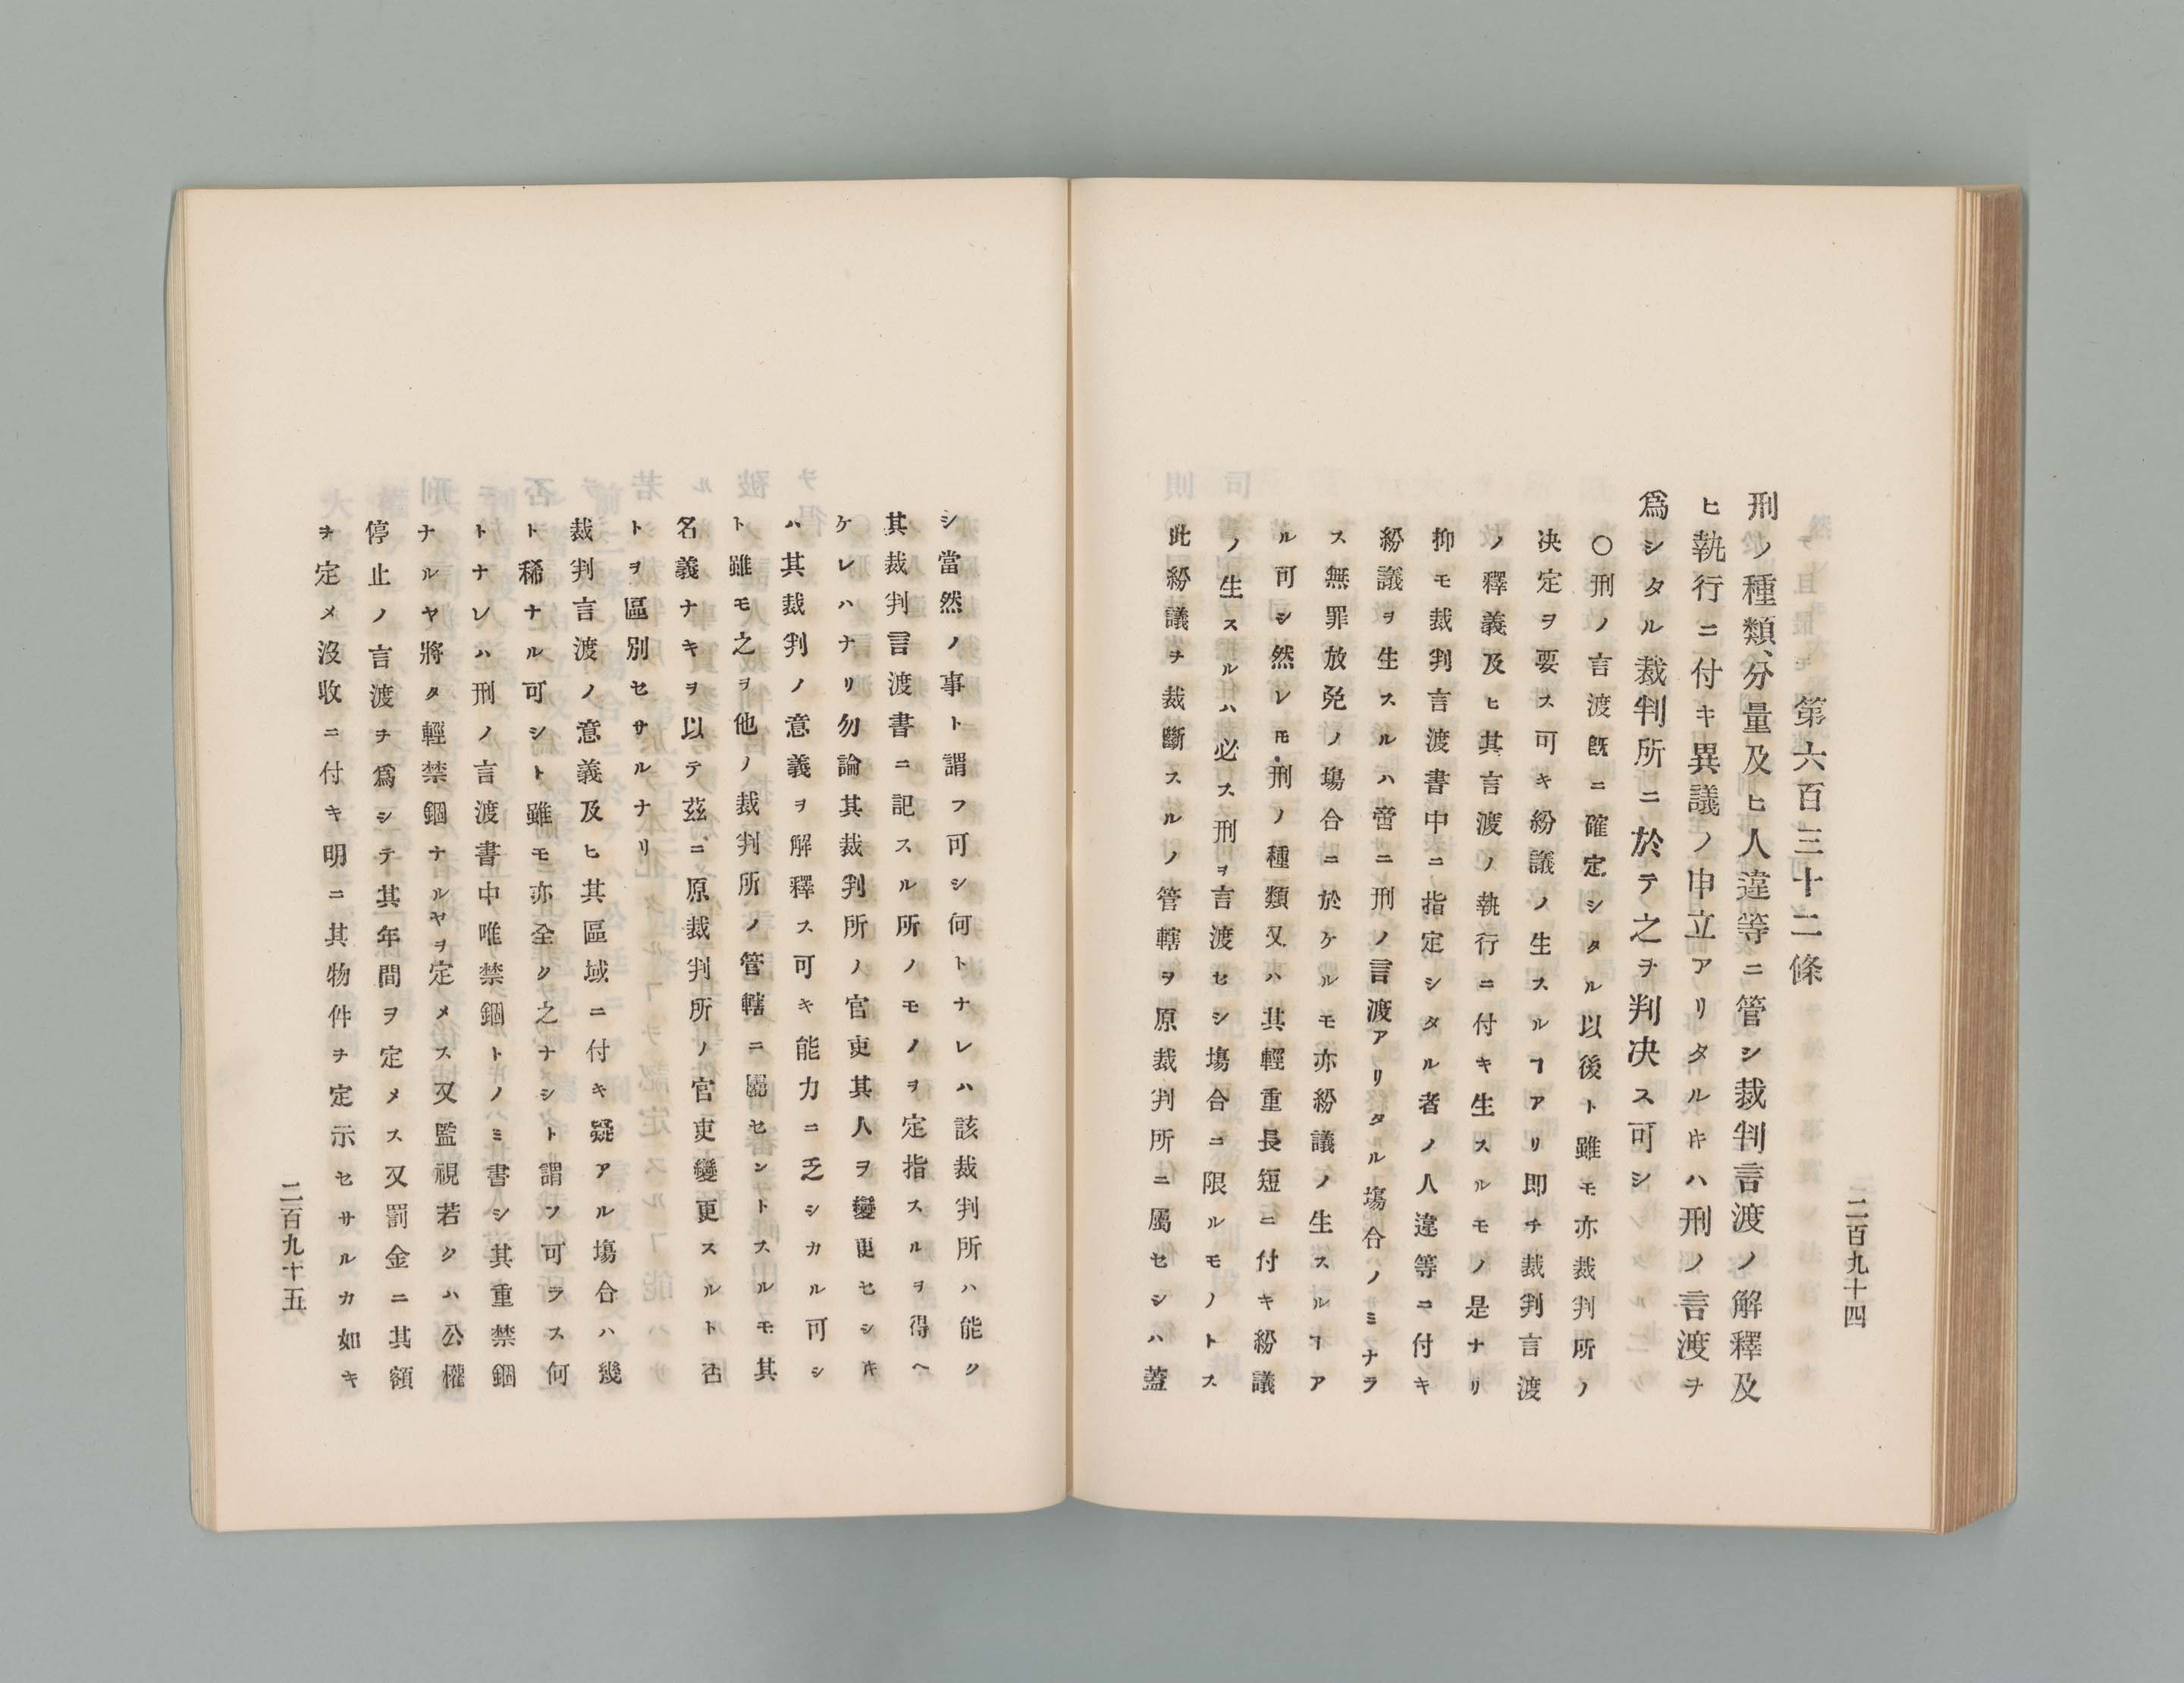 二百九十四
第六百三十二條
刑ノ種類、分量及ヒ人違等ニ管シ裁判言渡ノ解釋及
ヒ執行ニ付キ異議ノ申立アリタルキハ刑ノ言渡ヲ
爲シタル裁判所ニ於テ之ヲ判决ス可シ
〇刑ノ言渡既ニ確定シタル以後ト雖モ亦裁判所ノ
决定ヲ要ス可キ紛議ノ生スルヿアリ即チ裁判言渡
ノ釋義及ヒ其言渡ノ執行ニ付キ生スルモノ是ナリ
抑モ裁判言渡書中ニ指定シタル者ノ人違等ニ付キ
紛議ヲ生スルハ啻ニ刑ノ言渡アリタル塲合ノミナラ
ス無罪放免ノ塲合ニ於ケルモ亦紛議ノ生スルヿア
ル可シ然レ𪜈刑ノ種類又ハ其輕重長短ニ付キ紛議
ノ生スルハ必ス刑ヲ言渡セシ塲合ニ限ルモノトス
此紛議ヲ裁斷スルノ管轄ヲ原裁判所ニ屬セシハ蓋
シ當然ノ事ト謂フ可シ何トナレハ該裁判所ハ能ク
其裁判言渡書ニ記スル所ノモノヲ定指スルヲ得ヘ
ケレハナリ勿論其裁判所ノ官吏其人ヲ變更セシキ
ハ其裁判ノ意義ヲ解釋ス可キ能力ニ乏シカル可シ
ト雖モ之ヲ他ノ裁判所ノ管轄ニ屬センドスルモ其
名義ナキヲ以テ茲ニ原裁判所ノ官吏變更スルト否
トヲ區別セサルナリ
裁判言渡ノ意義及ヒ其區域ニ付キ疑アル塲合ハ幾
ト稀ナル可シト雖モ亦全ク之ナシト謂フ可ラス何
トナレハ刑ノ言渡書中唯禁錮トノミ書シ其重禁錮
ナルヤ將タ輕禁錮ナルヤヲ定メス又監視若クハ公權
停止ノ言渡ヲ爲シテ其年間ヲ定メス又罰金ニ其額
ヲ定メ沒收ニ付キ明ニ其物件ヲ定示セサルカ如キ
二百九十五